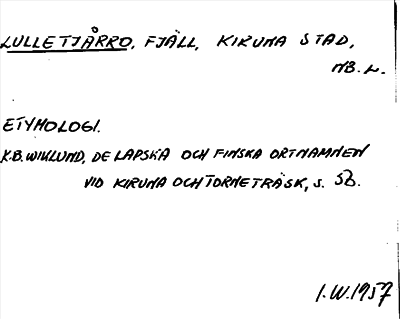 LULLETJÅRRO, FJÄLL, KIRUNA STAD,
NB. L.
ETYMOLOGI.
K.B. WIKLUND, DE LAPSKA OCH FINSKA ORTNAMNEN
VID KIRUNA OCH TORNETRÄSK, S. 5b.
I.W. 1957